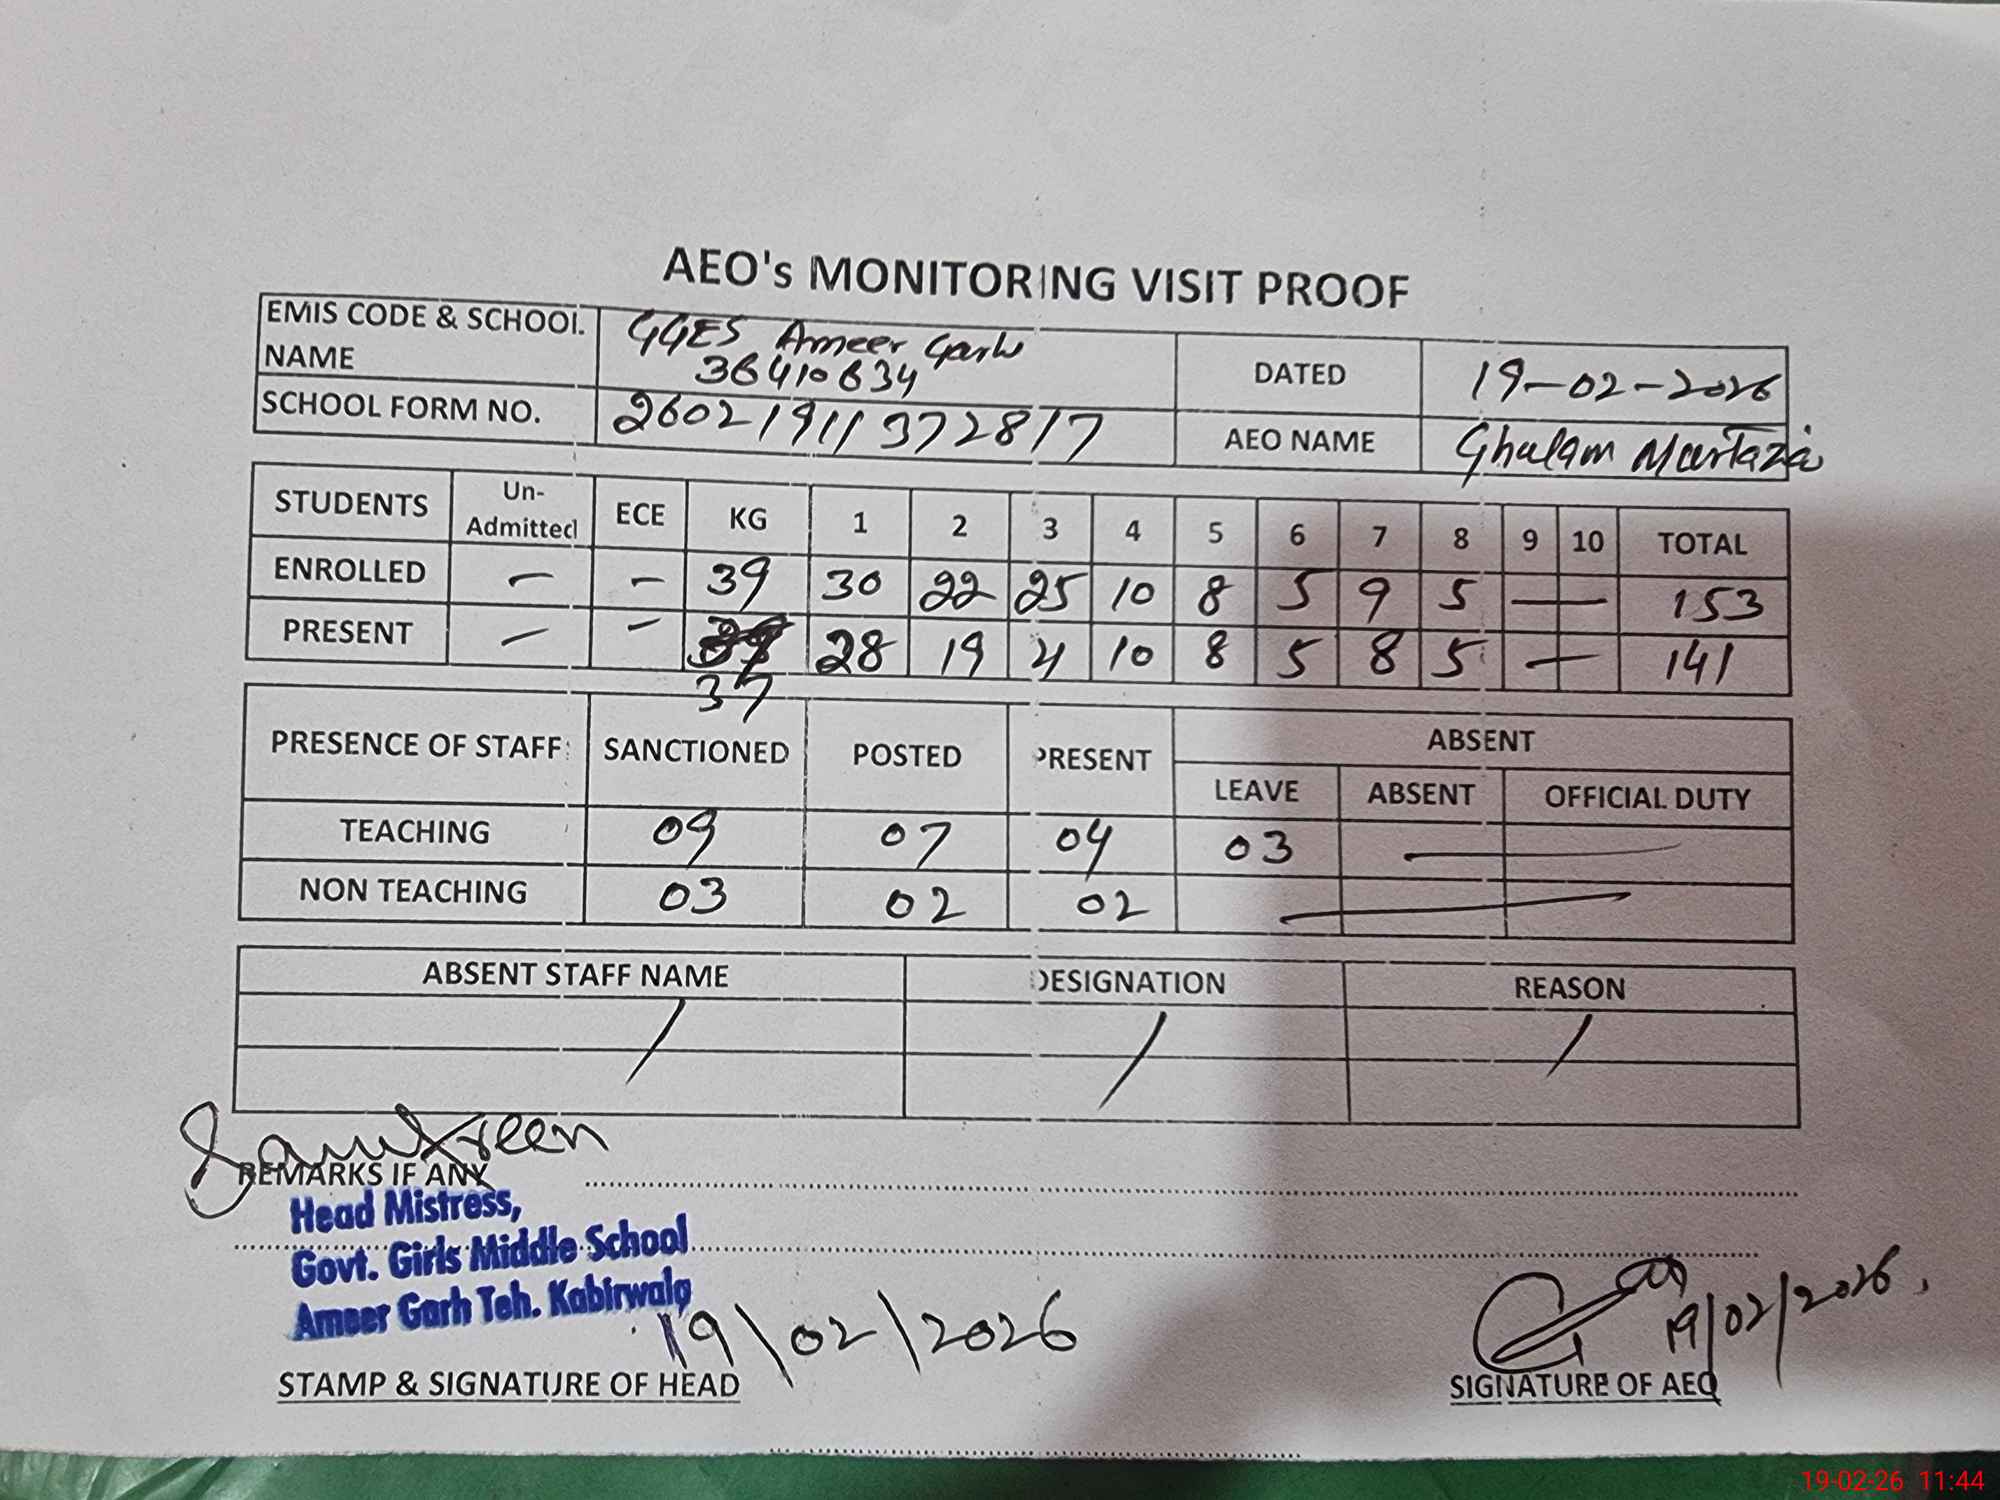 AEO's MONITORING VISIT PROOF
EMIS CODE & SCHOOL NAME GGES Ameer Garh 36410634 DATED 19-02-2026
SCHOOL FORM NO. 26021911372817 AEO NAME Ghulam Murtaza
STUDENTS Un-Admitted ECE KG 1 2 3 4 5 6 7 8 9 10 TOTAL
ENROLLED – – 39 30 22 25 10 8 5 9 5 — 153
PRESENT – – 37 28 19 21 10 8 5 8 5 — 141
PRESENCE OF STAFF: SANCTIONED POSTED PRESENT ABSENT
LEAVE ABSENT OFFICIAL DUTY
TEACHING 09 07 04 03 —
NON TEACHING 03 02 02 —
ABSENT STAFF NAME DESIGNATION REASON
/ / /
REMARKS IF ANY
Head Mistress,
Govt. Girls Middle School
Ameer Garh Teh. Kabirwala
19/02/2026 19/02/2026
STAMP & SIGNATURE OF HEAD SIGNATURE OF AEO
19-02-26 11:44